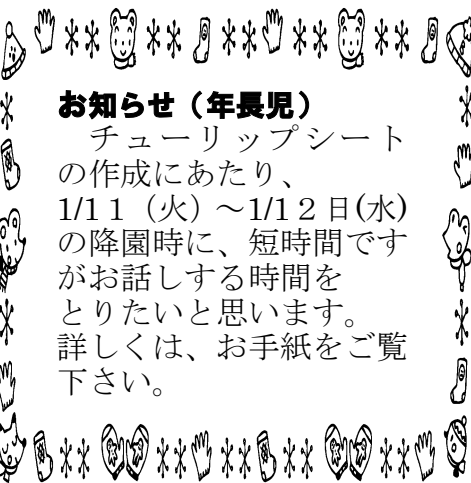 お知らせ（年長児）
　チューリップシート
の作成にあたり、
1/1１（火）～1/1２日(水)
の降園時に、短時間です
がお話しする時間を
とりたいと思います。
詳しくは、お手紙をご覧
下さい。